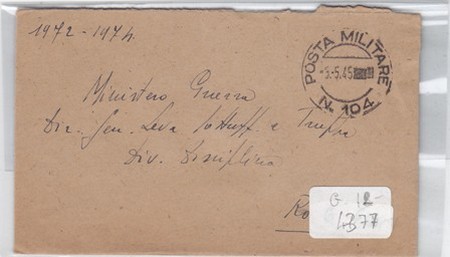 1972-1974.
POSTA MILITARE
5.45
N. 104
Ministero Guerra
Dir. Gen. Leva Sottuff. e Truppa
Div. Disciplina
G 12-
4377